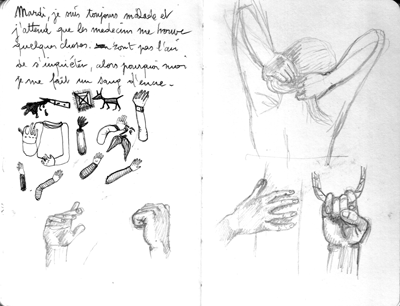 Mardi, je suis toujours malade et
j'attend que les medecins me trouve
quelques choses. ont pas l'air
de s'inquiéter, alors pourquoi moi
je me fait un sang d'encre.